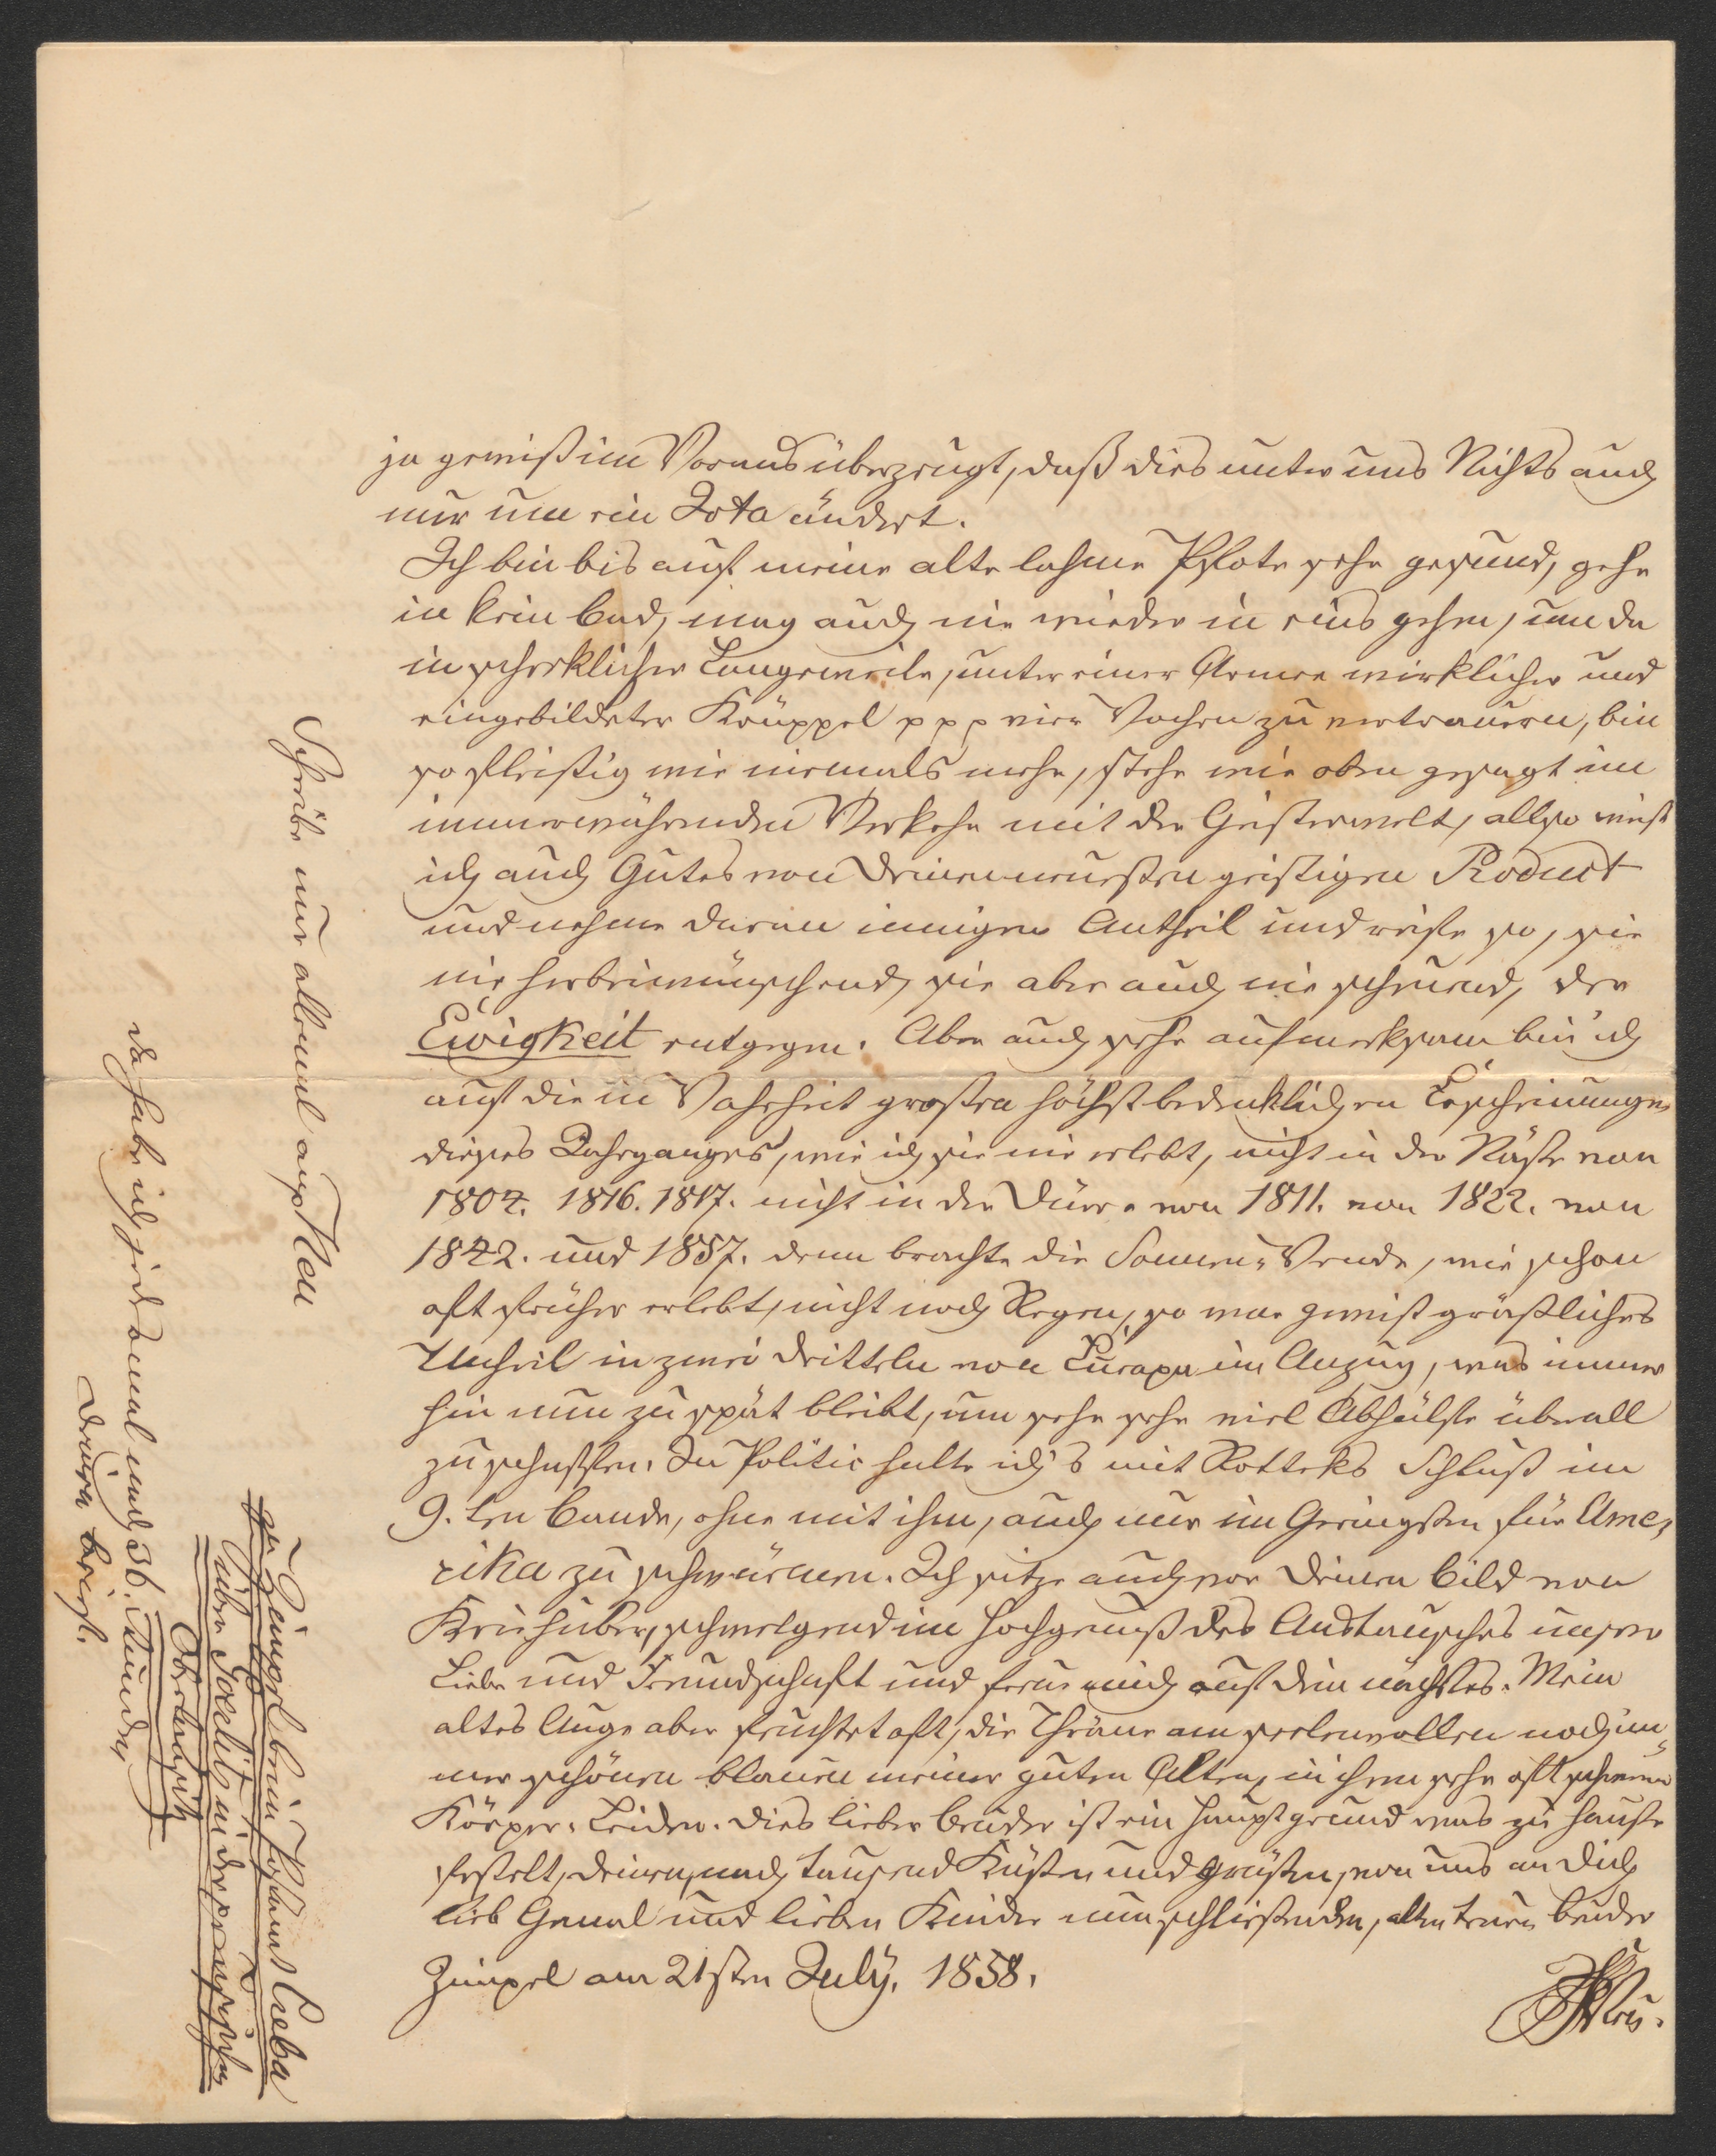 ja gewiß im Voraus überzeugt, daß dies unter uns Nichts auch
nur um ein Jota ändert.
Ich bin bis auf meine alte lahme Pfote sehr gesund, gehe
in kein Bad, mag auch nie wieder in eins gehen, um da
in schrecklicher Langerweile, unter einer Armee wirklicher und
eingebildeter Krüppel ppp vier Wochen zu vertrauern, bin
so fleißig wie niemals mehr, stehe wie oben gesagt im
immerwährenden Verkehr mit der Geisterwelt, allso
ich auch Gutes von Deinem neuesten geistigen Product
und nehme daran innigen Antheil und reife so, sie
nie herbeiwünschend, sie aber auch nie scheuend, der
Ewigkeit entgegen. Aber auch sehr aufmerksam bin ich
auf die in Wahrheit großen höchst bedenklichen Erscheinungen
dieses Jahrganges, wie ich sie nie erlebt, nicht in der Näße von
1804. 1816. 1817. nicht in der Dürre von 1811. von 1822. von
1842. und 1857. denn brachte die Sonnen-Wende, wie schon
oft früher erlebt, nicht noch Regen, so war gewiß gräßliches
Unheil in zwei Dritteln von Europa im Anzug, was immer
hin nun zu spät bleibt, um sehr sehr viel Abhülfe überall
zu schaffen. In Politic halte ich's mit Rotteks Schluß im
9. ten Bande, ohne mit ihm, auch nur im Geringsten für Ame-
rika zu schwärmen. Ich sitze auch vor Deinem Bild von
Kriehuber, schwelgend im Hochgenuß des Austausches unsrer
Liebe und Freundschaft und freue mich auf Dein nächstes. Mein
altes Auge aber feuchtet oft, die Thräne am seelenvollen noch im-
mer schönen blauen meiner guten Alten, in ihrem sehr oft schweren
Körper-Leiden. Dies lieber Bruder ist ein Hauptgrund was zu Hause
festelt, Deinen, nach tausend Küßen und Grüßen, von uns an Dich
lieb Gemal und lieben Kinder nun schließenden, alten treuen Bruder
Zimpel am 21sten July. 1858.
Schreibe nur allemal aufs Neu
Zimpel beim Postamt Creba
über Goerlitz in der preußischen
Oberlausitz
da habe ich jedesmal nach 36. Stunden
Deinen Brief.